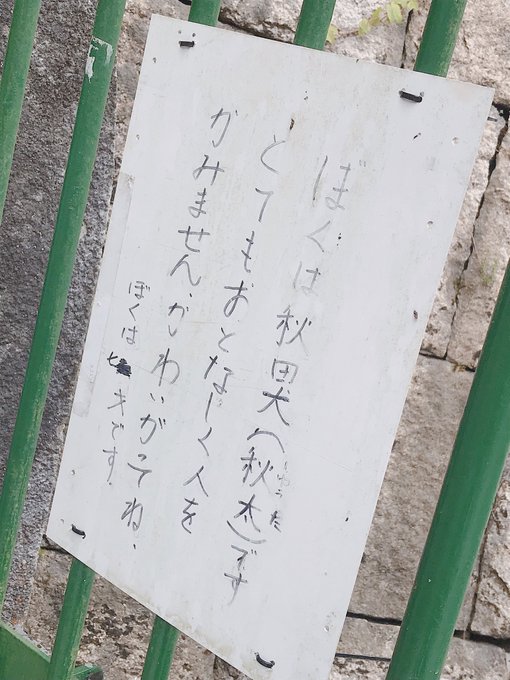 ぼくは秋田犬(秋太)です
しゅうた
とてもおとなしく人を
かみません、かわいがってね、
ぼくは 才です